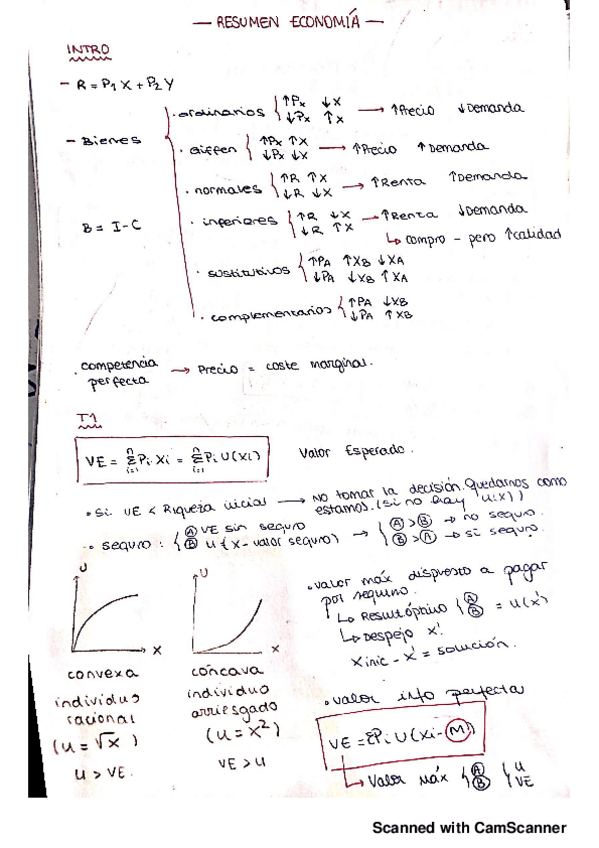 — RESUMEN ECONOMÍA —
INTRO
- R = P1 X + P2 Y
- Bienes
· ordinarios { ↑Px ↓X → ↑Precio ↓Demanda
↓Px ↑X
· Giffen { ↑Px ↑X → ↑Precio ↑Demanda
↓Px ↓X
· normales { ↑R ↑X → ↑Renta ↑Demanda
↓R ↓X
B = I - C
· inferiores { ↑R ↓X → ↑Renta ↓Demanda
↓R ↑X
↳ compro - pero ↑calidad
· sustitutivos { ↑PA ↑XB ↓XA
↓PA ↓XB ↑XA
· complementarios { ↑PA ↓XB
↓PA ↑XB
· competencia perfecta → Precio = coste marginal.
T1
VE = Σ Pi Xi = Σ Pi U(Xi) Valor Esperado.
n i=1 n i=1
· Si VE < Riqueza inicial → No tomar la decisión. Quedarnos como
estamos. (si no hay U(X))
· seguro: { Ⓐ VE sin seguro → { Ⓐ > Ⓑ → no seguro.
Ⓑ U(X - valor seguro) Ⓑ > Ⓐ → si seguro.
U X
convexa
individuo
racional
(U = √X)
U > VE.
U X
cóncava
individuo
arriesgado
(U = X²)
VE > U
· Valor máx dispuesto a pagar
por seguro.
↳ Result óptimo { Ⓐ Ⓑ = U(X')
↳ Despejo X'.
Xinic - X' = solución.
· Valor info perfecta
VE = ΣPi U(Xi - M)
↳ Valor máx { Ⓐ Ⓑ { U VE
Scanned with CamScanner